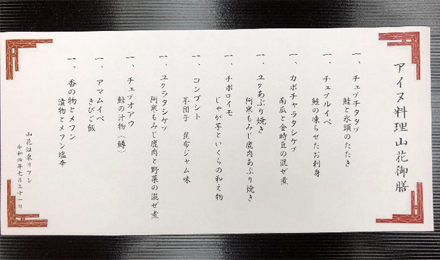 アイヌ料理山花御膳
一、チェプチタタプ
鮭と氷頭のたたき
一、チェプルイペ
鮭の凍らせたお刺身
一、カボチャラタシケプ
南瓜と金時豆の混ぜ煮
一、ユクあぶり焼き
阿寒もみじ鹿肉あぶり焼き
一、チポロイモ
じゃが芋といくらの和え物
一、コンブシト
芋団子 昆布ジャム味
一、ユクラタシケプ
阿寒もみじ鹿肉と野菜の混ぜ煮
一、チェプオアウ
鮭の汁物(鱒)
一、アマムイペ
きびご飯
一、香の物とメフン
漬物とメフン塩辛
山花温泉リフレ
令和四年七月三十一日